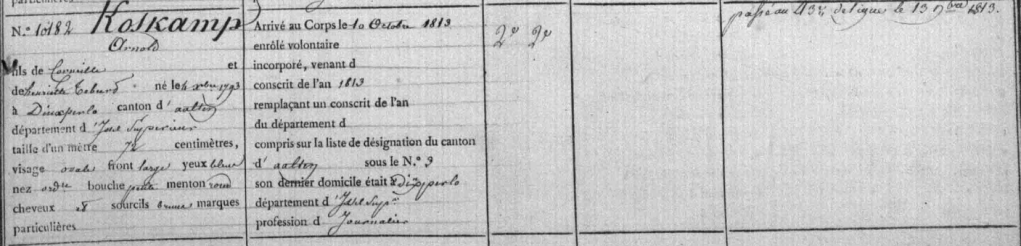 particulières
N.º 10182 Koskamp
Arnold
fils de Corneille et
de henriette Teburd né le 4 xbre 1793
à Dinxperlo canton d'aalten
département d'Issel Supérieur
taille d'un mètre 72 centimètres,
visage ovale front large yeux bleus
nez ordre bouche petite menton rond
cheveux id sourcils bruns marques
particulières
Arrivé au Corps le 10 Octobre 1813
enrôlé volontaire
incorporé, venant d
conscrit de l'an 1813
remplaçant un conscrit de l'an
du département d
compris sur la liste de désignation du canton
d'aalten sous le N.º 9
son dernier domicile était à dinxperlo
département d'Issel Supr
profession d Journalier
2e 2e
passé au 43e de ligne le 13 9bre 1813.